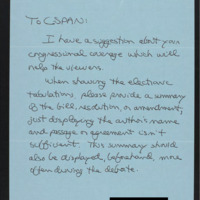 To CSPAN:
I have a suggestion about your
congressional coverage which will
help the viewers.
When showing the electronic
tabulations, please provide a summary
of the bill, resolution, or amendment,
just displaying the author's name
and passage or agreement isn't
sufficient. This summary should
also be displayed, beforehand, more
often during the debate.